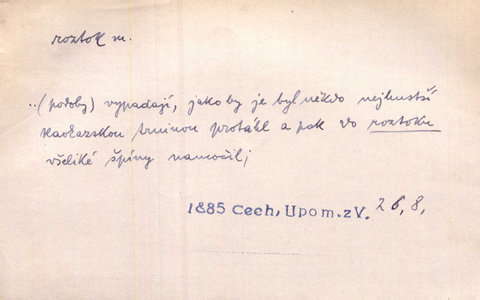 roztok m.
..(podoby) vypadají, jako by je byl někdo nejhustší
kavkazskou trninou protáhl a pak do roztoku
všeliké špíny namočil;
1885 Cech, Upom. z V. 26, 8,